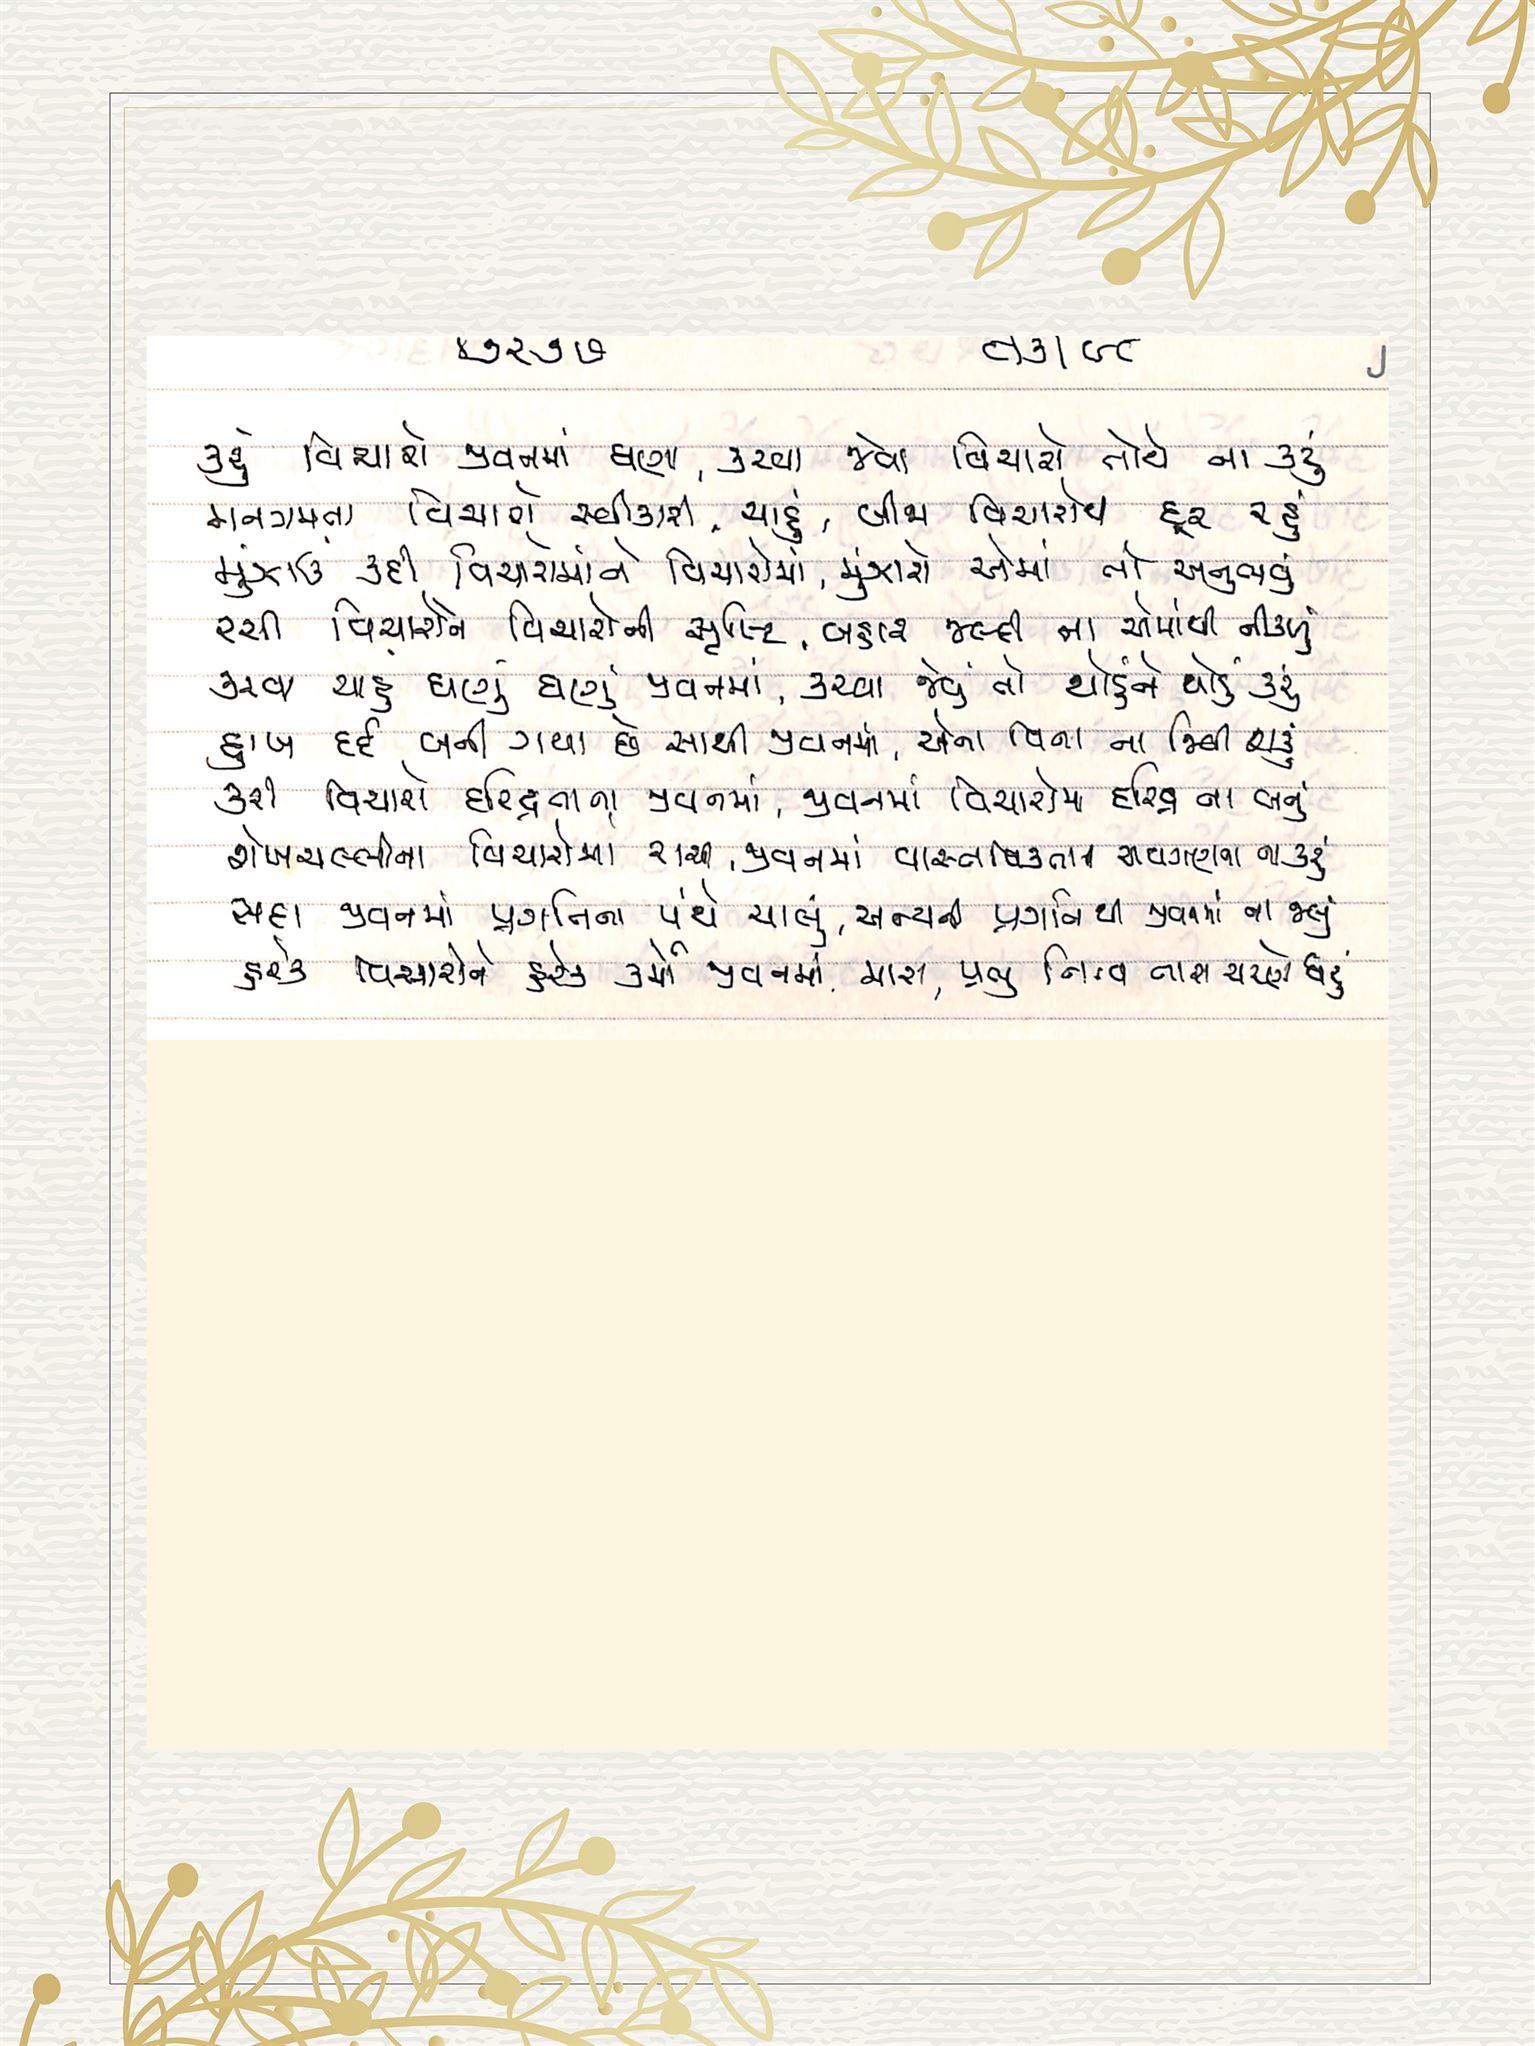 કરું વિચારો જીવનમાં ઘણા, કરવા જેવા વિચારો તોયે ના કરું
મનગમતા વિચારો સ્વીકારી, ચાહું, બીજા વિચારોથી દૂર રહું
મુંઝાઉ કદી વિચારોમાંને વિચારોમાં, મુંઝારો એમાં તો અનુભવું
રચી વિચારોને વિચારોની સૃષ્ટિ, બહાર જલ્દી ના એમાંથી નીકળું
કરવા ચાહું ઘણું ઘણું જીવનમાં, કરવા જેવું તો થોડુંને થોડું કરું
દુઃખ દર્દ બની ગયા છે સાથી જીવનમાં, એના વિના ના જીવી શકું
કરી વિચારો દરિદ્રતાના જીવનમાં, જીવનમાં વિચારોમાં દરિદ્ર ના બનું
શેખચલ્લીના વિચારોમાં રાચી, જીવનમાં વાસ્તવિકતાની અવગણના ના કરું
સદા જીવનમાં પ્રગતિના પંથે ચાલું, અન્યની પ્રગતિથી જીવનમાં ના જલું
હરેક વિચારોને હરેક કર્મો જીવનમાં મારા, પ્રભુ નિત્ય તારા ચરણે ધરું